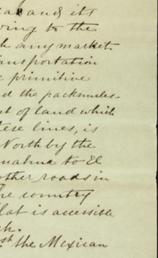 and its
owing to the
any market
transportation
primitive
the packmules
of land which
these lines, is
North by the
to El
other roads in
The country
is accessible
the Mexican